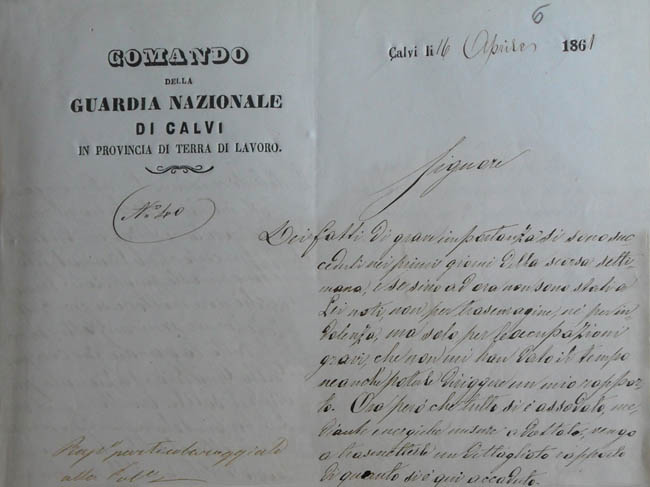 6
COMANDO
DELLA
GUARDIA NAZIONALE
DI CALVI
IN PROVINCIA DI TERRA DI LAVORO.
Calvi li 16 Aprile 1861
N.º 40
Signore
Dei fatti di grand'importanza si sono suc
ceduti nei primi giorni della scorsa setti-
mana, e se sino ad ora non sono stati a
Lei noti, non per trascuragine, nè per in
dolenza, ma solo per le occupazioni
gravi, che non mi han dato il tempo
neanche potule dirigere un mio rappor-
to. Ora però che tutto si è assodato, me-
diante energiche misure adottate, vengo
a trasmetterle un dettagliato rapporto
di quanto si è qui accaduto.
alla